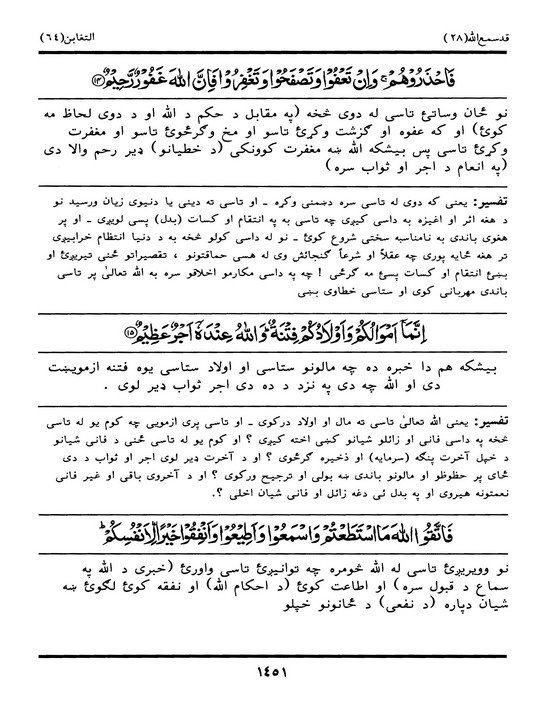 قدسمع الله (٢٨) التغابن (٦٤)
فَاحْذَرُوْهُمْ ۚ وَاِنْ تَعْفُوْا وَتَصْفَحُوْا وَتَغْفِرُوْا فَاِنَّ اللّٰهَ غَفُوْرٌ رَّحِيْمٌ ﴿١٤﴾
نو ځان وساتئ تاسی له دوی څخه (په مقابل د حکم د الله او د دوی لحاظ مه
کوئ) او که عفوه او گزشت وکړئ تاسو او مخ وگرځوئ تاسو او مغفرت
وکړئ تاسی پس بیشکه الله ښه مغفرت کوونکی (د خطیانو) ډیر رحم والا دی
(په انعام د اجر او ثواب سره)
تفسیر: یعنی که دوی له تاسی سره دښمنی وکړه ـ او تاسی ته دینی یا دنیوی زیان ورسید نو
د هغه اثر او اغیزه به داسی کیږی چه تاسی به په انتقام او کسات (بدل) پسی لویږی ـ او پر
هغوی باندی به نامناسبه سختی شروع کوئ ـ نو له داسی کولو څخه به د دنیا انتظام خرابیږی
تر هغه ځایه پوری چه عقلاً او شرعاً گنجائش وی له هسی حماقتونو ، تقصیراتو ځنی تیریږئ او
بښئ انتقام او کسات پسئ مه گرځی ! چه په داسی مکارمو اخلاقو سره به الله تعالیٰ پر تاسی
باندی مهربانی کوی او ستاسی خطاوی بښی
اِنَّمَآ اَمْوَالُكُمْ وَاَوْلَادُكُمْ فِتْنَةٌ ؕ وَاللّٰهُ عِنْدَهٗٓ اَجْرٌ عَظِيْمٌ ﴿١٥﴾
بیشکه هم دا خبره ده چه مالونو ستاسی او اولاد ستاسی یوه فتنه ازمویښت
دی او الله چه دی په نزد د ده دی اجر ثواب ډیر لوی .
تفسیر: یعنی الله تعالیٰ تاسی ته مال او اولاد درکوی ـ او تاسی پری ازمویی چه کوم یو له تاسی
څخه په داسی فانی او زائلو شیانو کښی اخته کیږی ؟ او کوم یو له تاسی ځنی د فانی شیانو
د خپل آخرت پنگه (سرمایه) او ذخیره گرځوی ؟ او د آخرت ډیر لوی اجر او ثواب د دی
ځای پر حظوظو او مالونو باندی ښه بولی او ترجیح ورکوی ؟ او د آخروی باقی او غیر فانی
نعمتونه هیروی او په بدل ئی دغه زائل او فانی شیان اخلی ؟.
فَاتَّقُوا اللّٰهَ مَا اسْتَطَعْتُمْ وَاسْمَعُوْا وَاَطِيْعُوْا وَاَنْفِقُوْا خَيْرًا لِّاَنْفُسِكُمْ ؕ
نو وویریږئ تاسی له الله څومره چه توانیږئ تاسی واورئ (خبری د الله په
سماع د قبول سره) او اطاعت کوئ (د احکام الله) او نفقه کوئ لگوئ ښه
شیان دپاره (د نفعی) د ځانونو خپلو
١٤٥١